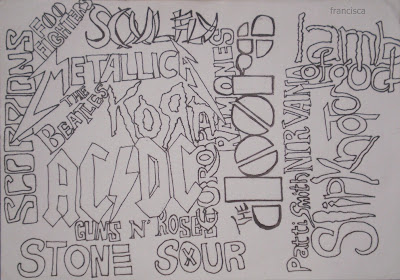 francisca
SCORPIONS
FOO
FIGHTERS
SOULFLY
METALLICA
THE
BEATLES
KORN
AC/DC
EUROPE
RAMONES
THE
DOORS
NIRVANA
Patti Smith
SlipKnoT
GUNS N' ROSES
STONE SOUR